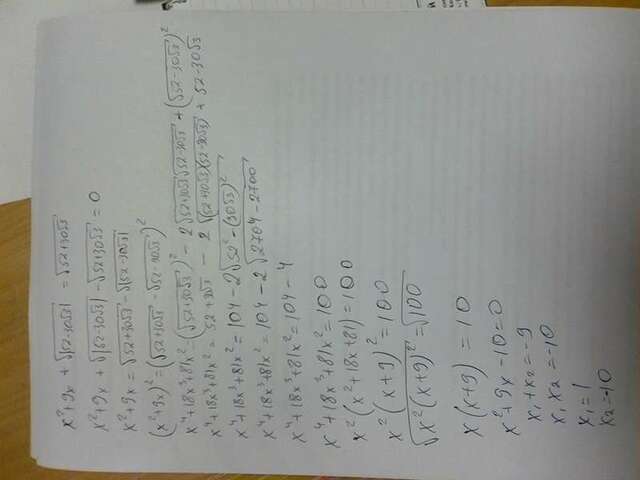 x² + 9x + √|52-30√3| = √52+30√3
x² + 9x + √|52-30√3| - √52+30√3 = 0
x² + 9x = √52+30√3 - √|52-30√3|
(x² + 9x)² = (√52+30√3 - √52-30√3)²
x⁴ + 18x³ + 81x² = (√52+30√3)² - 2√52+30√3 √52-30√3 + (√52-30√3)²
x⁴ + 18x³ + 81x² = 52 + 30√3 - 2√(52+30√3)(52-30√3) + 52-30√3
x⁴ + 18x³ + 81x² = 104 - 2√52² - (30√3)²
x⁴ + 18x³ + 81x² = 104 - 2√2704 - 2700
x⁴ + 18x³ + 81x² = 104 - 4
x⁴ + 18x³ + 81x² = 100
x² (x² + 18x + 81) = 100
x² (x + 9)² = 100
√x² (x + 9)² = √100
x (x + 9) = 10
x² + 9x - 10 = 0
x₁ + x₂ = -9
x₁ x₂ = -10
x₁ = 1
x₂ = -10